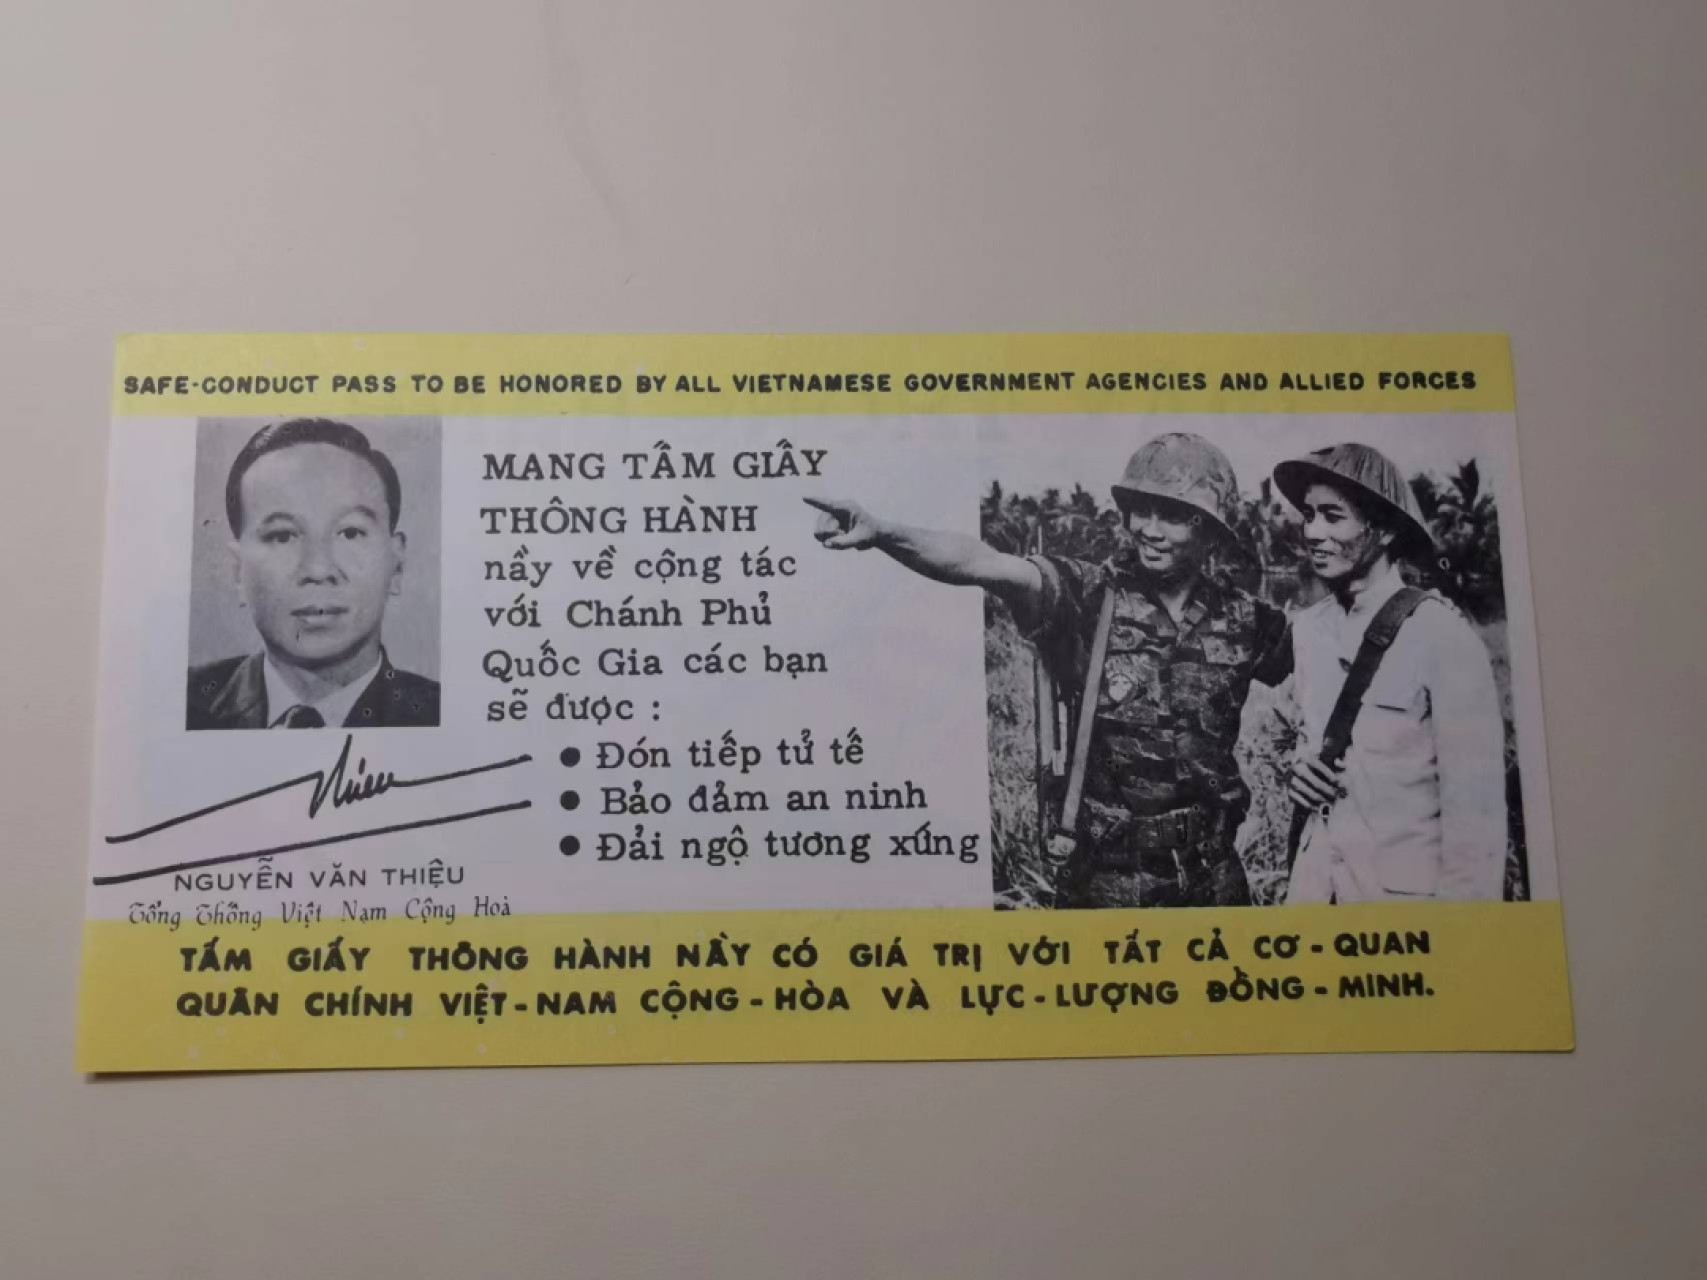 SAFE-CONDUCT PASS TO BE HONORED BY ALL VIETNAMESE GOVERNMENT AGENCIES AND ALLIED FORCES
MANG TẤM GIẤY
THÔNG HÀNH
nầy về cộng tác
với Chánh Phủ
Quốc Gia các bạn
sẽ được :
● Đón tiếp tử tế
● Bảo đảm an ninh
● Đải ngộ tương xứng
Thieu
NGUYỄN VĂN THIỆU
Tổng Thống Việt Nam Cộng Hoà
TẤM GIẤY THÔNG HÀNH NẦY CÓ GIÁ TRỊ VỚI TẤT CẢ CƠ - QUAN
QUÂN CHÍNH VIỆT - NAM CỘNG - HÒA VÀ LỰC - LƯỢNG ĐỒNG - MINH.